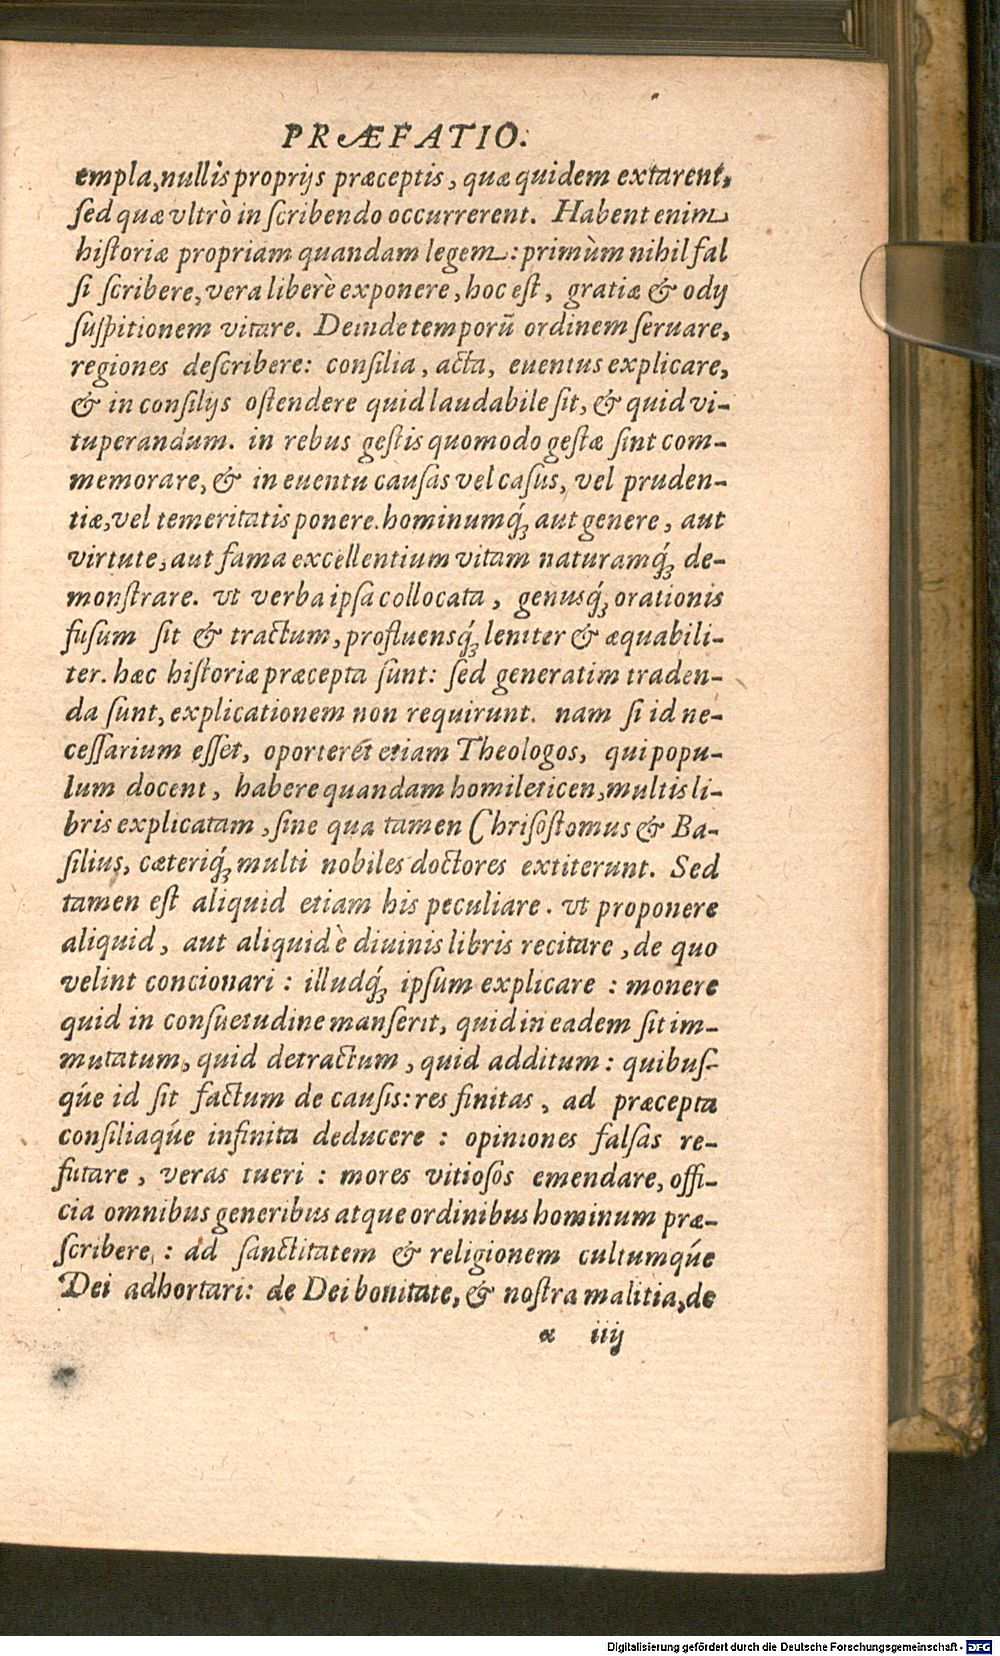 PRÆFATIO.
empla, nullis proprijs præceptis, quæ quidem extarent,
ſed quæ vltrò in ſcribendo occurrerent. Habent enim
hiſtoriæ propriam quandam legem: primùm nihil fal
ſi ſcribere, vera liberè exponere, hoc eſt, gratiæ & odij
ſuſpitionem vitare. Deinde temporũ ordinem ſeruare,
regiones deſcribere: conſilia, acta, euentus explicare,
& in conſilijs oſtendere quid laudabile ſit, & quid vi-
tuperandum. in rebus geſtis quomodo geſtæ ſint com-
memorare, & in euentu cauſas vel caſus, vel pruden-
tiæ, vel temeritatis ponere. hominumq́; aut genere, aut
virtute, aut fama excellentium vitam naturamq́; de-
monſtrare. vt verba ipſa collocata, genusq́; orationis
fuſum ſit & tractum, profluensq́; leniter & æquabili-
ter. hæc hiſtoriæ præcepta ſunt: ſed generatim traden-
da ſunt, explicationem non requirunt. nam ſi id ne-
ceſſarium eſſet, oporterét etiam Theologos, qui popu-
lum docent, habere quandam homileticen, multis li-
bris explicatam, ſine qua tamen Chriſoſtomus & Ba-
ſilius, cæteriq́; multi nobiles doctores extiterunt. Sed
tamen eſt aliquid etiam his peculiare. vt proponere
aliquid, aut aliquid è diuinis libris recitare, de quo
velint concionari: illudq́; ipſum explicare: monere
quid in conſuetudine manſerit, quid in eadem ſit im-
mutatum, quid detractum, quid additum: quibuſ-
qúe id ſit factum de cauſis: res finitas, ad præcepta
conſiliaqúe infinita deducere: opiniones falſas re-
futare, veras tueri: mores vitioſos emendare, offi-
cia omnibus generibus atque ordinibus hominum præ-
ſcribere,: ad ſanctitatem & religionem cultumqúe
Dei adhortari: de Dei bonitate, & noſtra malitia, de
α iiij
Digitalisierung gefördert durch die Deutsche Forschungsgemeinschaft - DFG